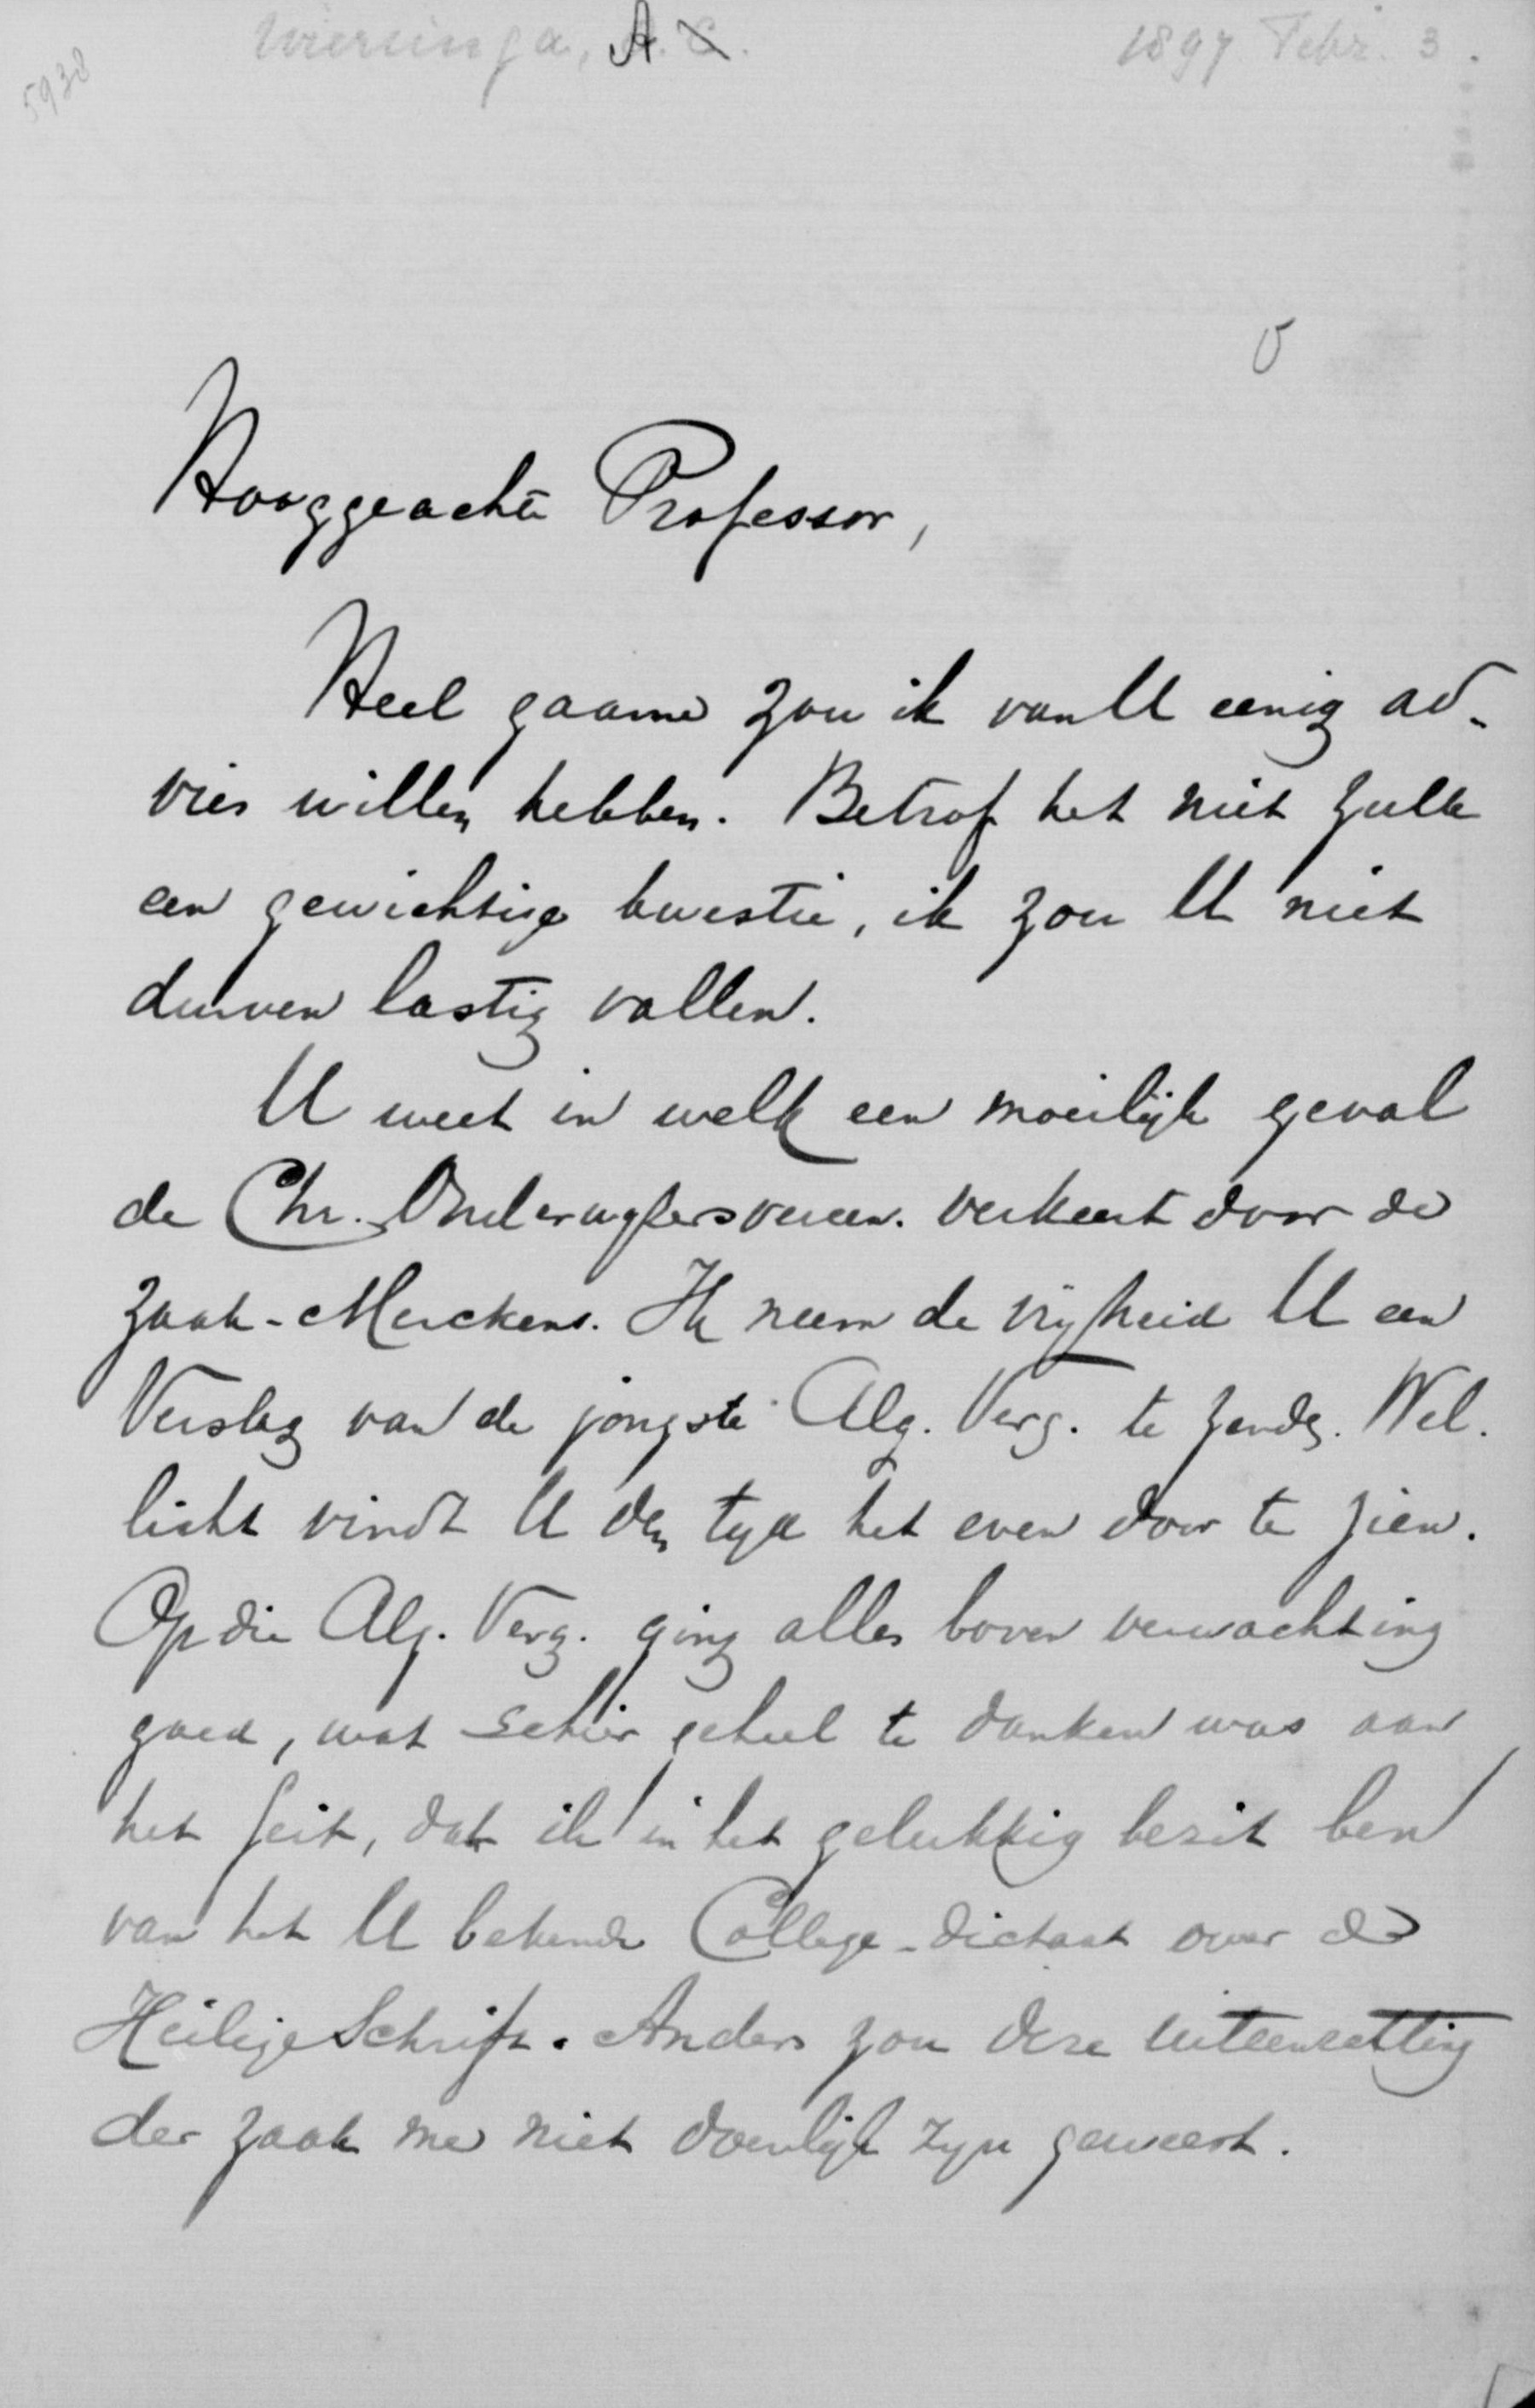 Wieringa, A.
1897 Febr. 3.
5938
Hooggeachte Professor,
Heel gaarne zou ik van U eenig ad-
vies willen hebben. Betrof het niet zulk
een gewichtige kwestie, ik zou U niet
durven lastig vallen.
U weet in welk een moeilijk geval
de Chr. Onderwijzersvereen. verkeert door de
zaak-Merckens. Ik neem de vrijheid U een
Verslag van de jongste Alg. Verg. te zenden. Wel-
licht vindt U den tijd het even door te zien.
Op die Alg. Verg. ging alles boven verwachting
goed, wat schier geheel te danken was aan
het feit, dat ik in het gelukkig bezit ben
van het U bekende College-dictaat over de
Heilige Schrift. Anders zou deze uiteenzetting
der zaak me niet doenlijk zijn geweest.